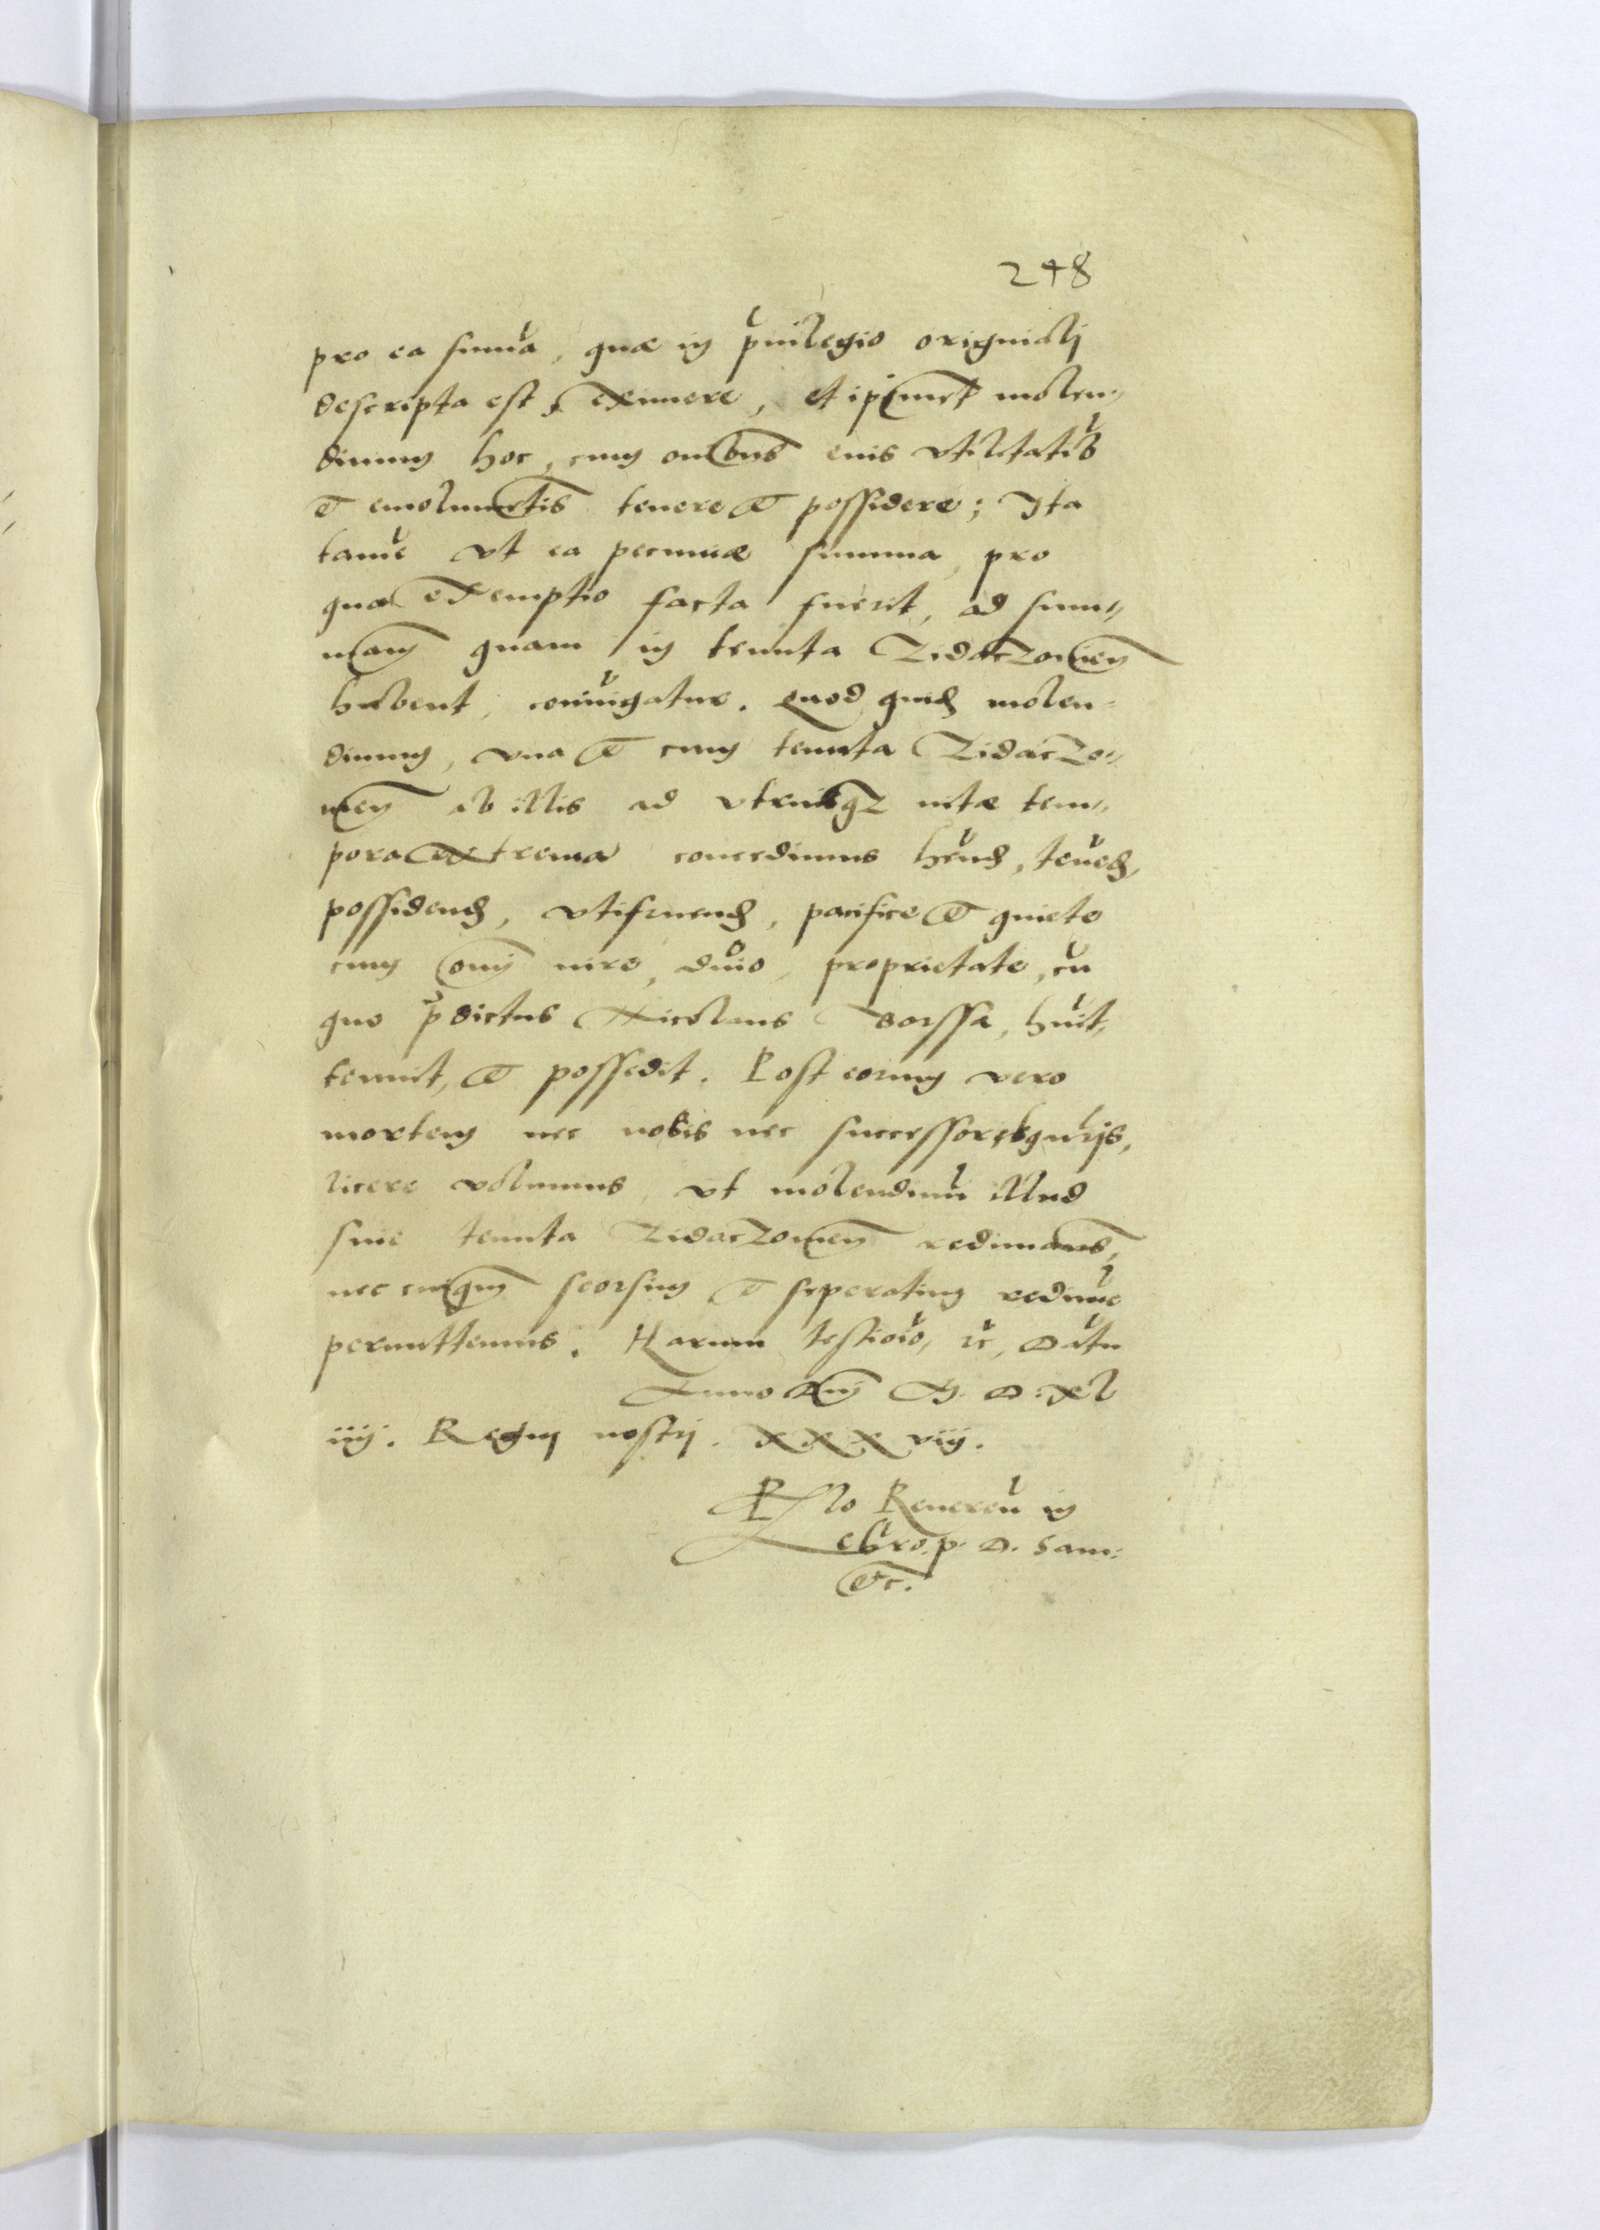 248
pro ea summa, quae in privilegio originali
descripta est, eximere, et ipsimet molen-
dinum hoc, cum omnibus eius utilitatib
et emolumentis tenere et possidere; Ita
tamen ut ea pecuniae summa, pro
qua exemptio facta fuerit, ad sum-
mam quam in tenuta Zidaczowien
habent, coniungatur. Quod quid molen-
dinum, una et cum tenuta Zidaczo-
wien ab illis ad utriusque vitae tem-
pora extrema concedimus hend, tened,
possidend, utifruend, pacifice et quiete
cum omni iure, dnio, proprietate, cu
quo pdictus Nicolaus Dorssa, huit,
tenuit, et possedit. Post eorum vero
mortem nec nobis nec successorib nris,
licere volumus, ut molendinu illud
sine tenuta Zidaczowien redimamus,
nec cuiquam seorsim et seperatim redimere
permittemus. Harum testimo, etc, Datu
Anno Dni M. D. XL
iiij. Regni nostri. XXXviij.
Rlo Reveren in
Chro. p. D. Sam:
etc.